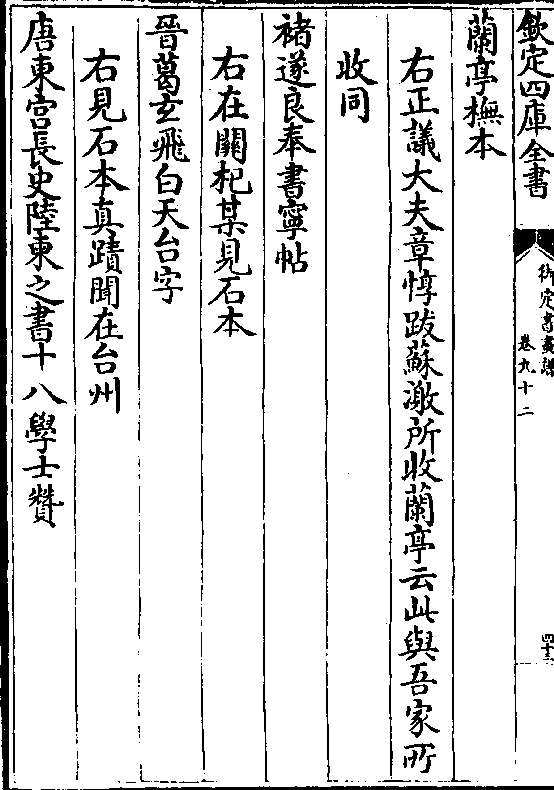 欽定四庫全書
御定書畫譜
卷九十二
四十三
蘭亭橅本
右正議大夫章惇跋蘇激所收蘭亭云此與吾家所
收同
褚遂良奉書寧帖
右在關杞某見石本
晉葛玄飛白天台字
右見石本真蹟聞在台州
唐東宫長史陸東之書十八學士贊